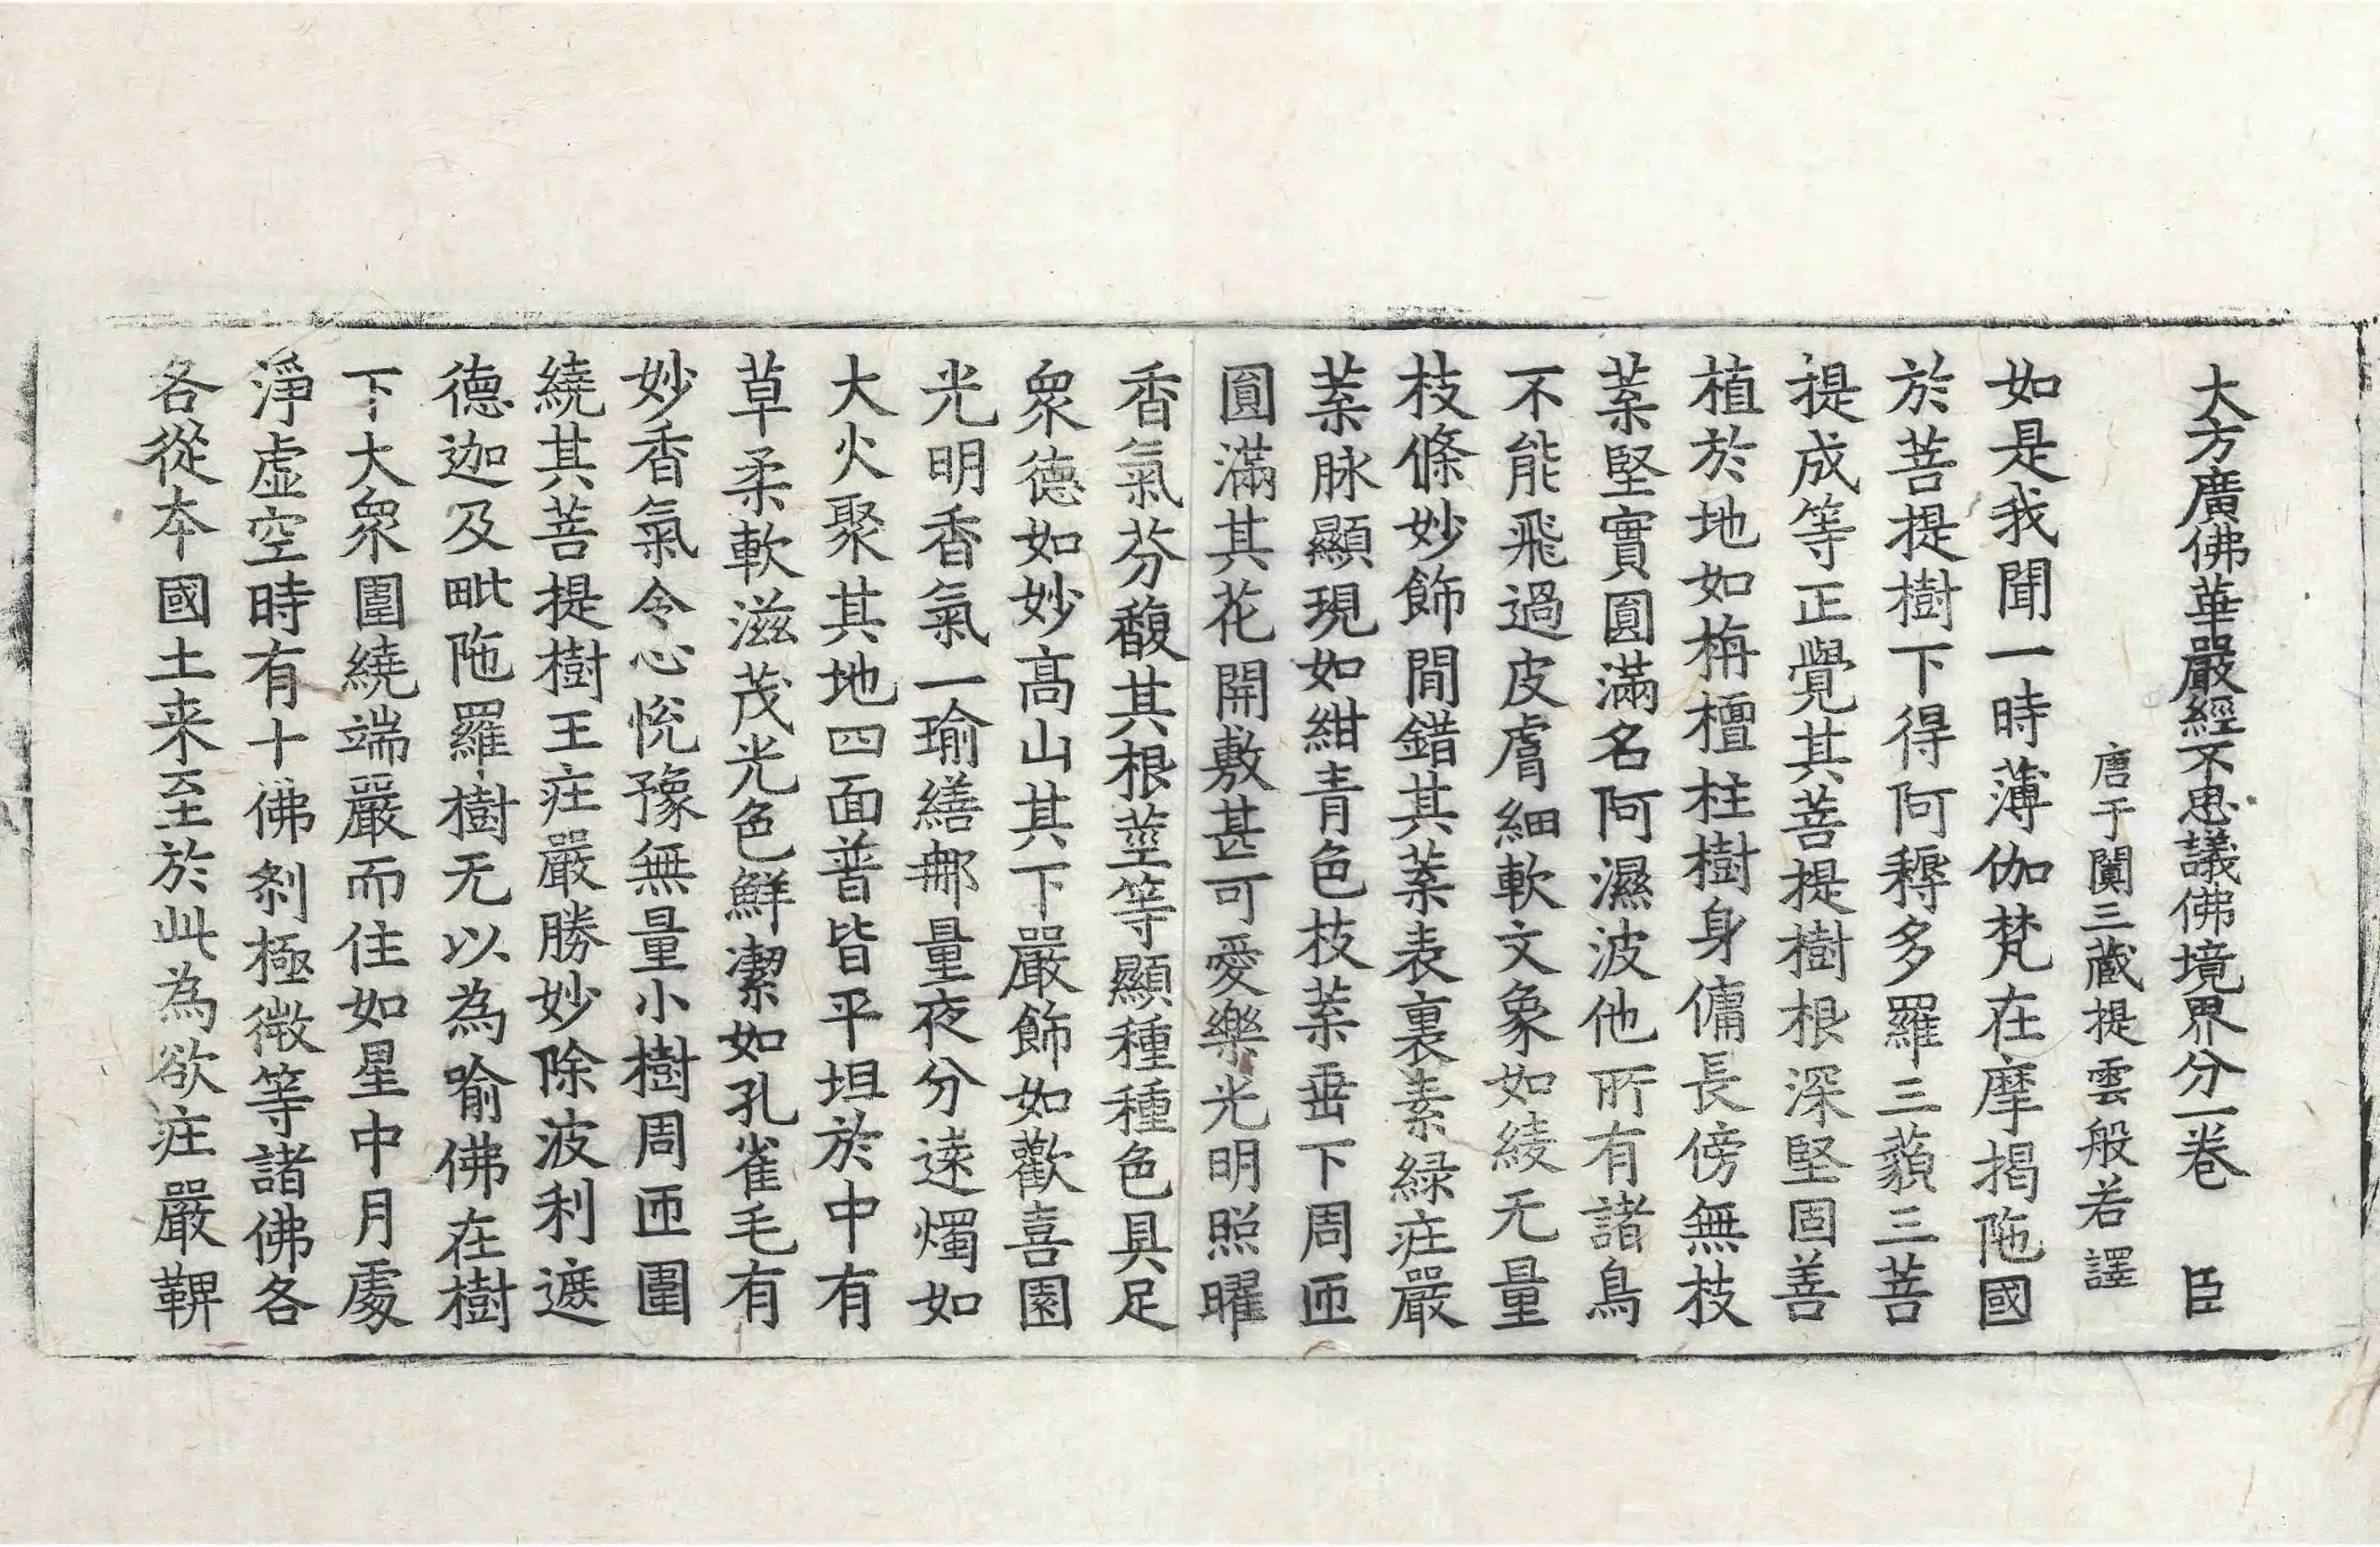 大方廣佛華嚴經不思議佛境界分一卷　臣
唐于闐三藏提雲般若譯
如是我聞一時薄伽梵在摩揭陁國
於菩提樹下得阿耨多羅三藐三菩
提成等正覺其菩提樹根深堅固善
植於地如栴檀柱樹身傭長傍無枝
葉堅實圓滿名阿濕波他所有諸鳥
不能飛過皮膚細軟文象如綾无量
枝條妙飾間錯其葉表裏素緑庄嚴
葉脉顯現如紺青色枝葉垂下周匝
圓滿其花開敷甚可愛樂光明照曜
香氣芬馥其根莖等顯種種色具足
衆德如妙高山其下嚴飾如歡喜園
光明香氣一瑜繕那量夜分遠燭如
大火聚其地四面普皆平坦於中有
草柔軟滋茂光色鮮潔如孔雀毛有
妙香氣令心悅豫無量小樹周匝圍
繞其菩提樹王庄嚴勝妙除波利遮
德迦及毗陁羅樹无以為喻佛在樹
下大衆圍繞端嚴而住如星中月處
淨虛空時有十佛刹極微等諸佛各
各從本國土来至於此為欲庄嚴鞞